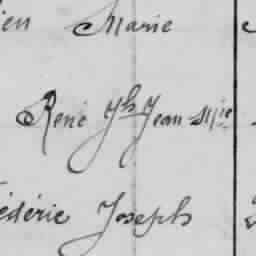 ien Marie
René Jh Jean Mie
édéric Joseph